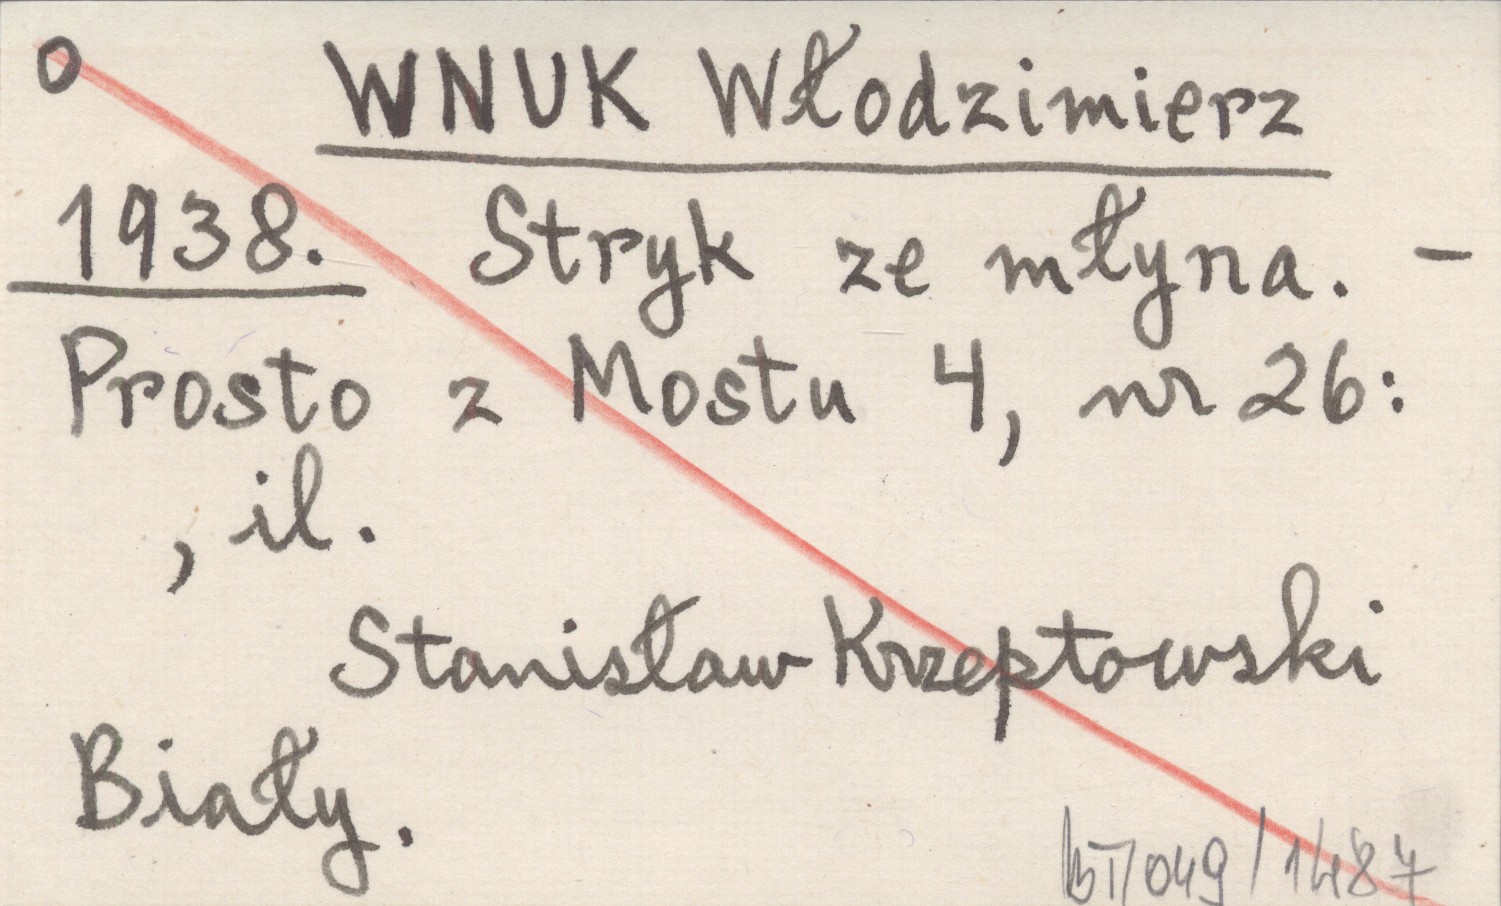 O WNUK Włodzimierz
1938. Stryk ze młyna. -
Prosto z Mostu 4, nr 26:
, il.
Stanisław Krzeptowski
Biały.
BT/049/1487